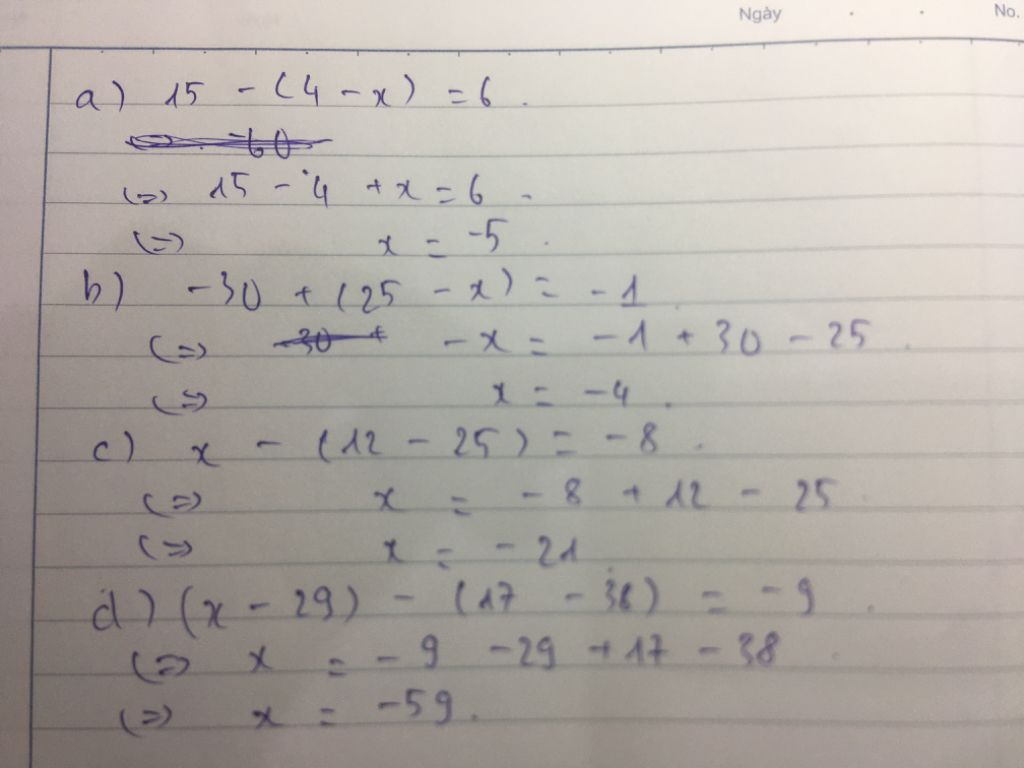 Ngày . . No.
a) 15 - (4 - x) = 6 .
(=) 15 - 4 + x = 6 .
(=) x = -5 .
b) -30 + (25 - x) = -1
(=) -x = -1 + 30 - 25 .
(=) x = -4 .
c) x - (12 - 25) = -8 .
(=) x = -8 + 12 - 25
(=) x = -21
d) (x - 29) - (17 - 38) = -9 .
(=) x = -9 -29 +17 - 38
(=) x = -59 .